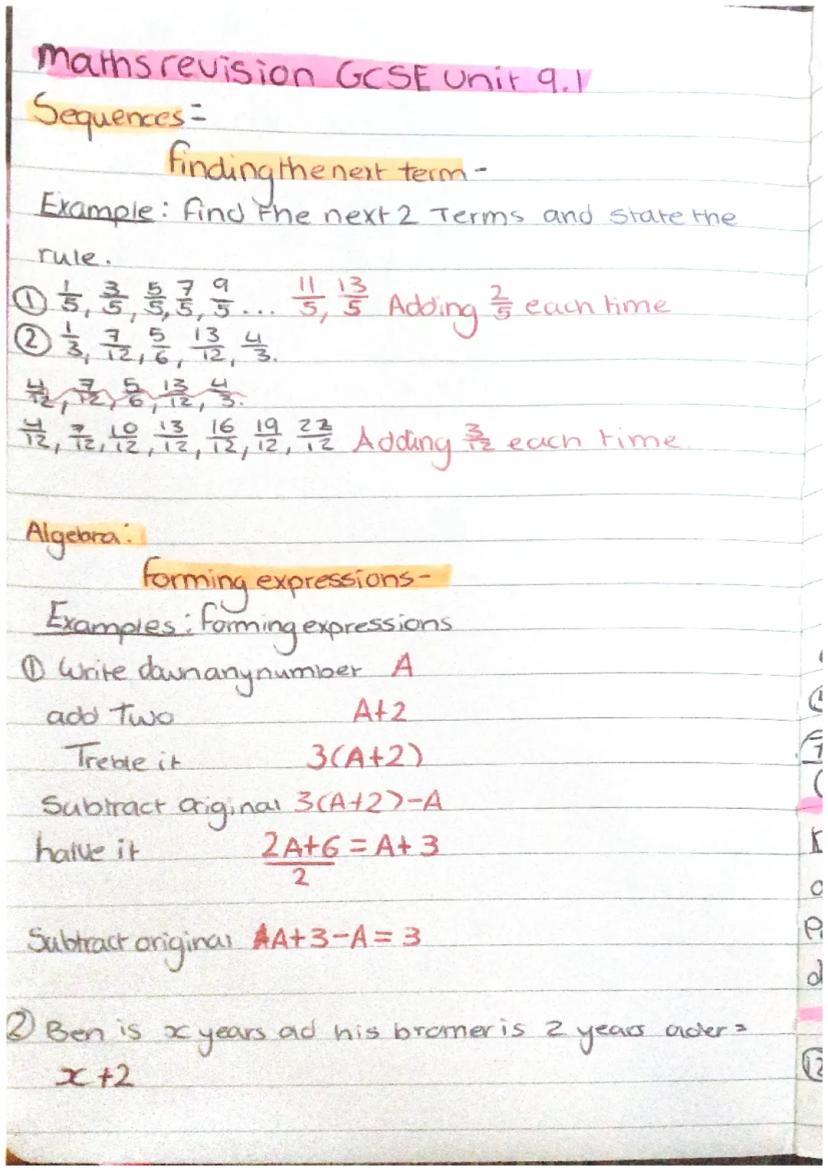 maths revision GCSE Unit 9.1
Sequences=
finding the next term-
Example: find the next 2 Terms and state the
rule.
① 1/5, 3/5, 5/5, 7/5, 9/5 ... 11/5, 13/5 Adding 2/5 each time
② 1/3, 7/12, 5/6, 13/12, 4/3.
4/12, 7/12, 5/6, 13/12, 4/3.
4/12, 7/12, 10/12, 13/12, 16/12, 19/12, 22/12 Adding 3/12 each time.
Algebra:
forming expressions-
Examples: forming expressions
① Write down any number A
add Two A+2
Treble it 3(A+2)
Subtract original 3(A+2)-A
halve it 2A+6/2 = A+3
Subtract original A+3-A=3
② Ben is x years old his brother is 2 years older=
x+2